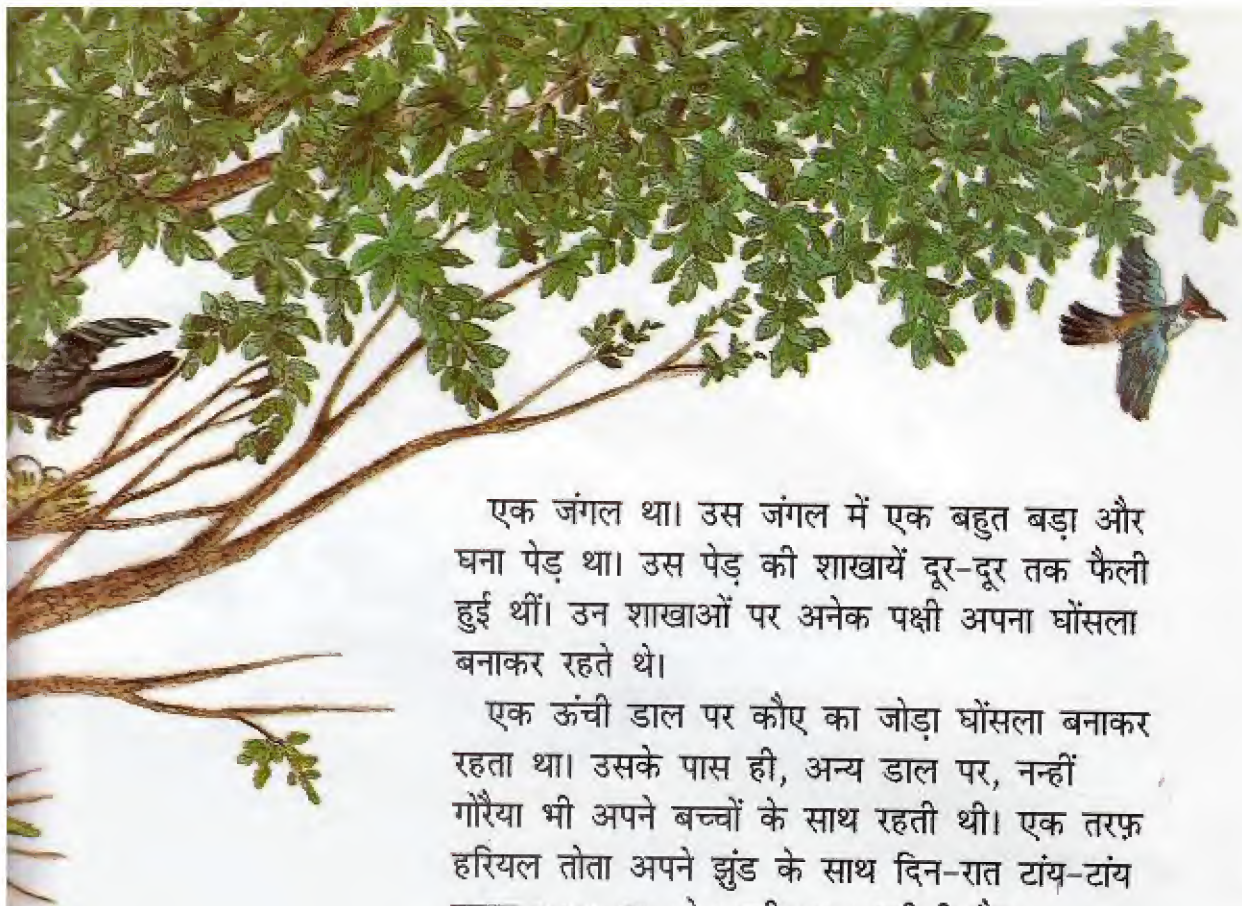 एक जंगल था। उस जंगल में एक बहुत बड़ा और
घना पेड़ था। उस पेड़ की शाखायें दूर-दूर तक फैली
हुई थीं। उन शाखाओं पर अनेक पक्षी अपना घोंसला
बनाकर रहते थे।
एक ऊंची डाल पर कौए का जोड़ा घोंसला बनाकर
रहता था। उसके पास ही, अन्य डाल पर, नन्हीं
गोरैया भी अपने बच्चों के साथ रहती थी। एक तरफ़
हरियल तोता अपने झुंड के साथ दिन-रात टांय-टांय